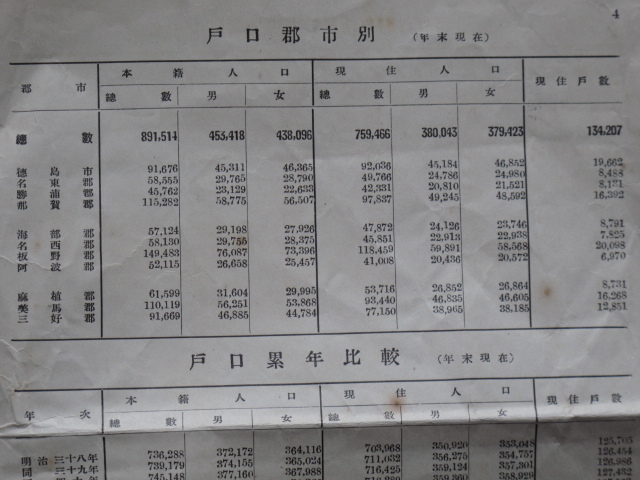 4
戶口郡市別 (年末現在)
郡市 本籍人口 現住人口 現住戶數
總數 男 女 總數 男 女
總數 891,514 453,418 438,096 759,466 380,043 379,423 134,207
德島市 91,676 45,311 46,365 92,036 45,184 46,852 19,662
名東郡 58,555 29,765 28,790 49,766 24,786 24,980 8,488
勝浦郡 45,762 23,129 22,633 42,331 20,810 21,521 8,131
那賀郡 115,282 58,775 56,507 97,837 49,245 48,592 16,392
海部郡 57,124 29,198 27,926 47,872 24,126 23,746 8,791
名西郡 58,130 29,755 28,375 45,851 22,913 22,938 7,825
板野郡 149,483 76,087 73,396 118,459 59,891 58,568 20,098
阿波郡 52,115 26,658 25,457 41,008 20,436 20,572 6,970
麻植郡 61,599 31,604 29,995 53,716 26,852 26,864 8,731
美馬郡 110,119 56,251 53,868 93,440 46,835 46,605 16,268
三好郡 91,669 46,885 44,784 77,150 38,965 38,185 12,851
戶口累年比較 (年末現在)
年次 本籍人口 現住人口 現住戶數
總數 男 女 總數 男 女
明治三十八年 736,288 372,172 364,116 703,968 350,920 353,048 125,705
同三十九年 739,179 374,155 365,024 711,032 356,275 354,757 126,454
745,148 377,160 367,988 716,425 359,124 357,301 126,986